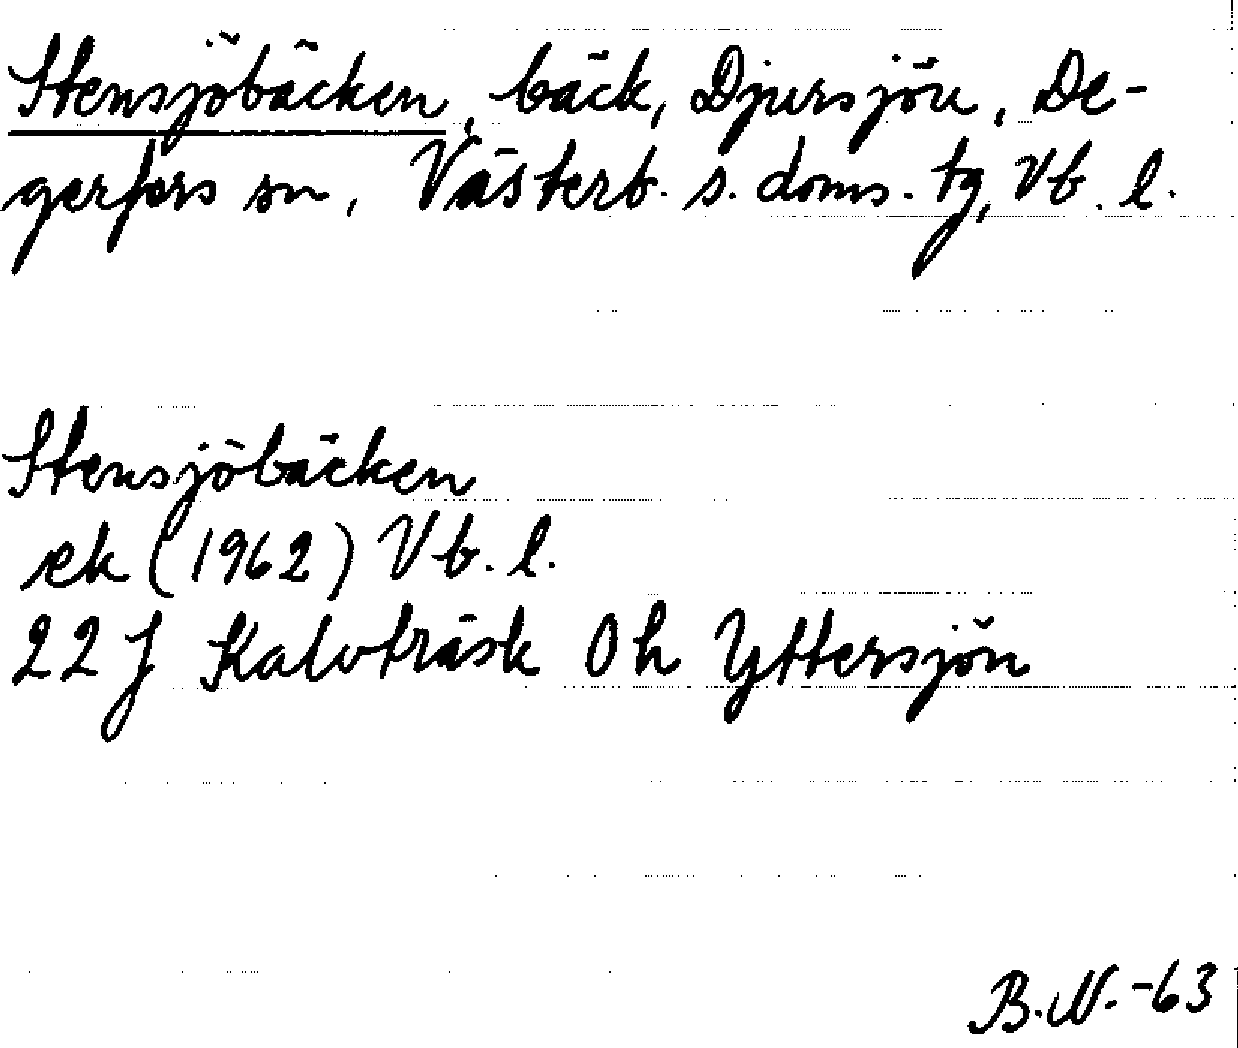 Stensjöbäcken, bäck, Djursjön, De-
gerfors sn, Västerb. s. doms. tg, Vb. l.
Stensjöbäcken
ek (1962) Vb. l.
22 J Kalvträsk 0h Yttersjön
B.N. -63